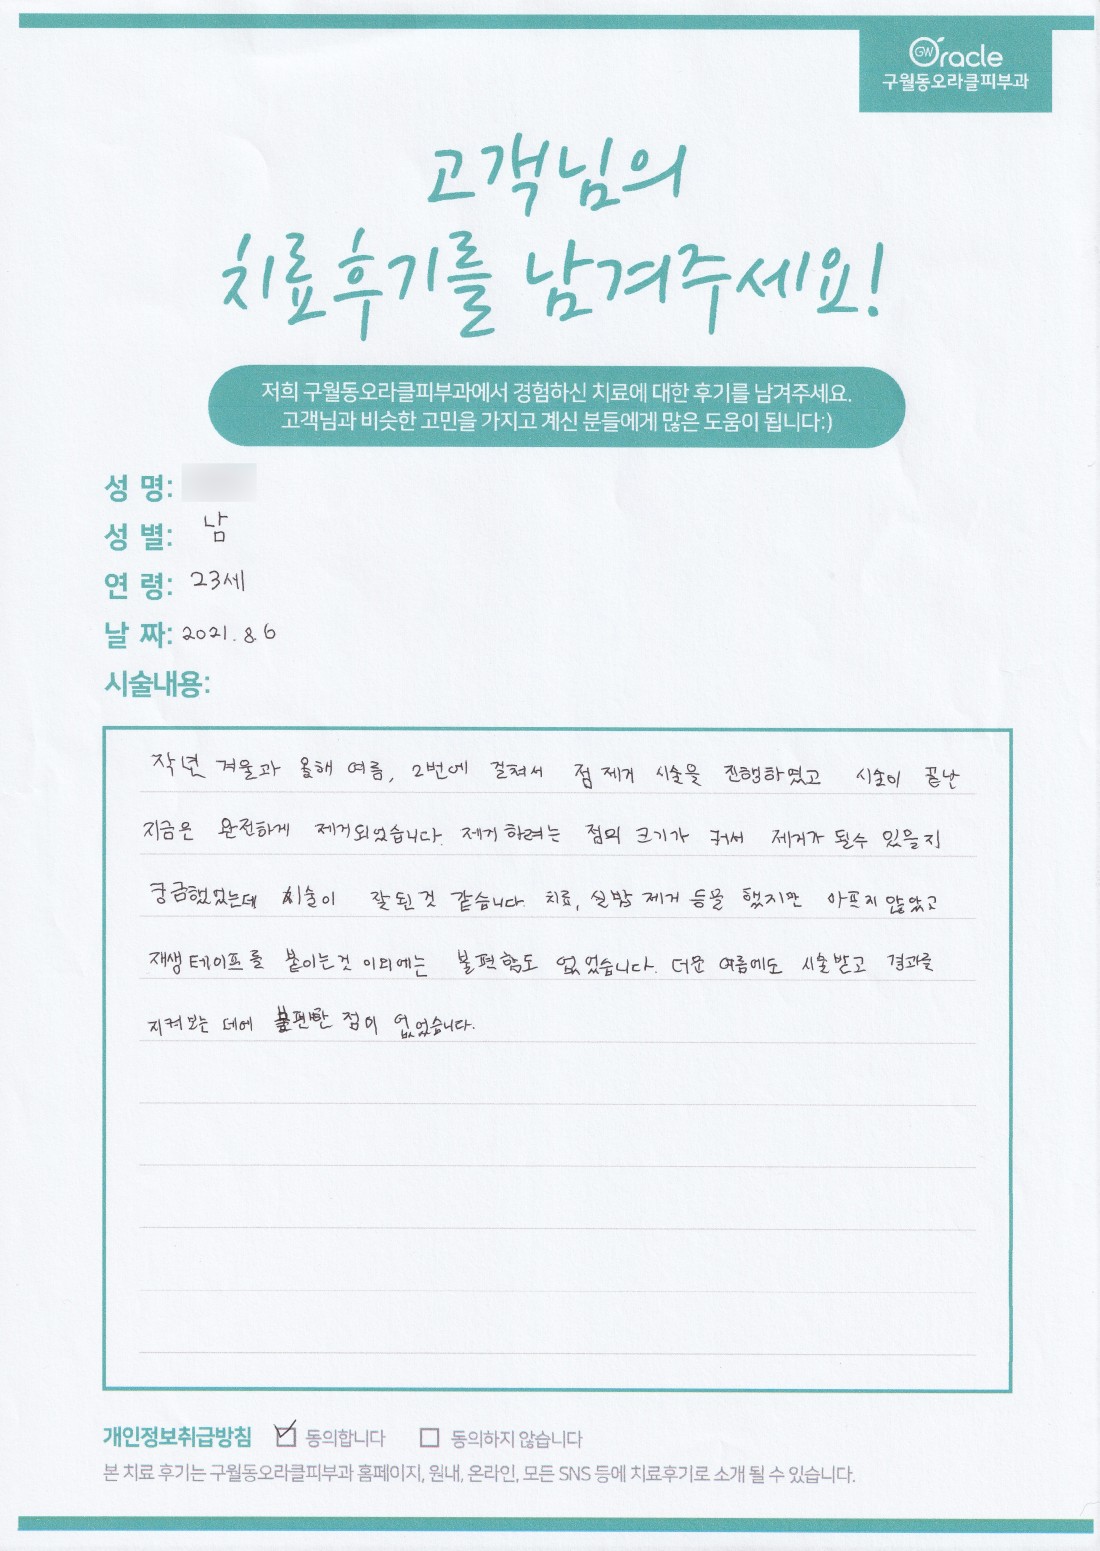 GW Oracle
구월동오라클피부과
고객님의
치료후기를 남겨주세요!
저희 구월동오라클피부과에서 경험하신 치료에 대한 후기를 남겨주세요.
고객님과 비슷한 고민을 가지고 계신 분들에게 많은 도움이 됩니다:)
성 명:
성 별: 남
연 령: 23세
날 짜: 2021.8.6
시술내용:
작년 겨울과 올해 여름, 2번에 걸쳐서 점 제거 시술을 진행하였고 시술이 끝난
지금은 완전하게 제거되었습니다. 제거하려는 점의 크기가 커서 제거가 될수 있을지
궁금했었는데 시술이 잘 된 것 같습니다. 치료, 실밥 제거 등을 했지만 아프지 않았고
재생 테이프를 붙이는것 이외에는 불편함도 없었습니다. 더운 여름에도 시술받고 경과를
지켜보는 데에 불편한 점이 없었습니다.
개인정보취급방침 동의합니다 동의하지 않습니다
본 치료 후기는 구월동오라클피부과 홈페이지, 원내, 온라인, 모든 SNS 등에 치료후기로 소개 될 수 있습니다.